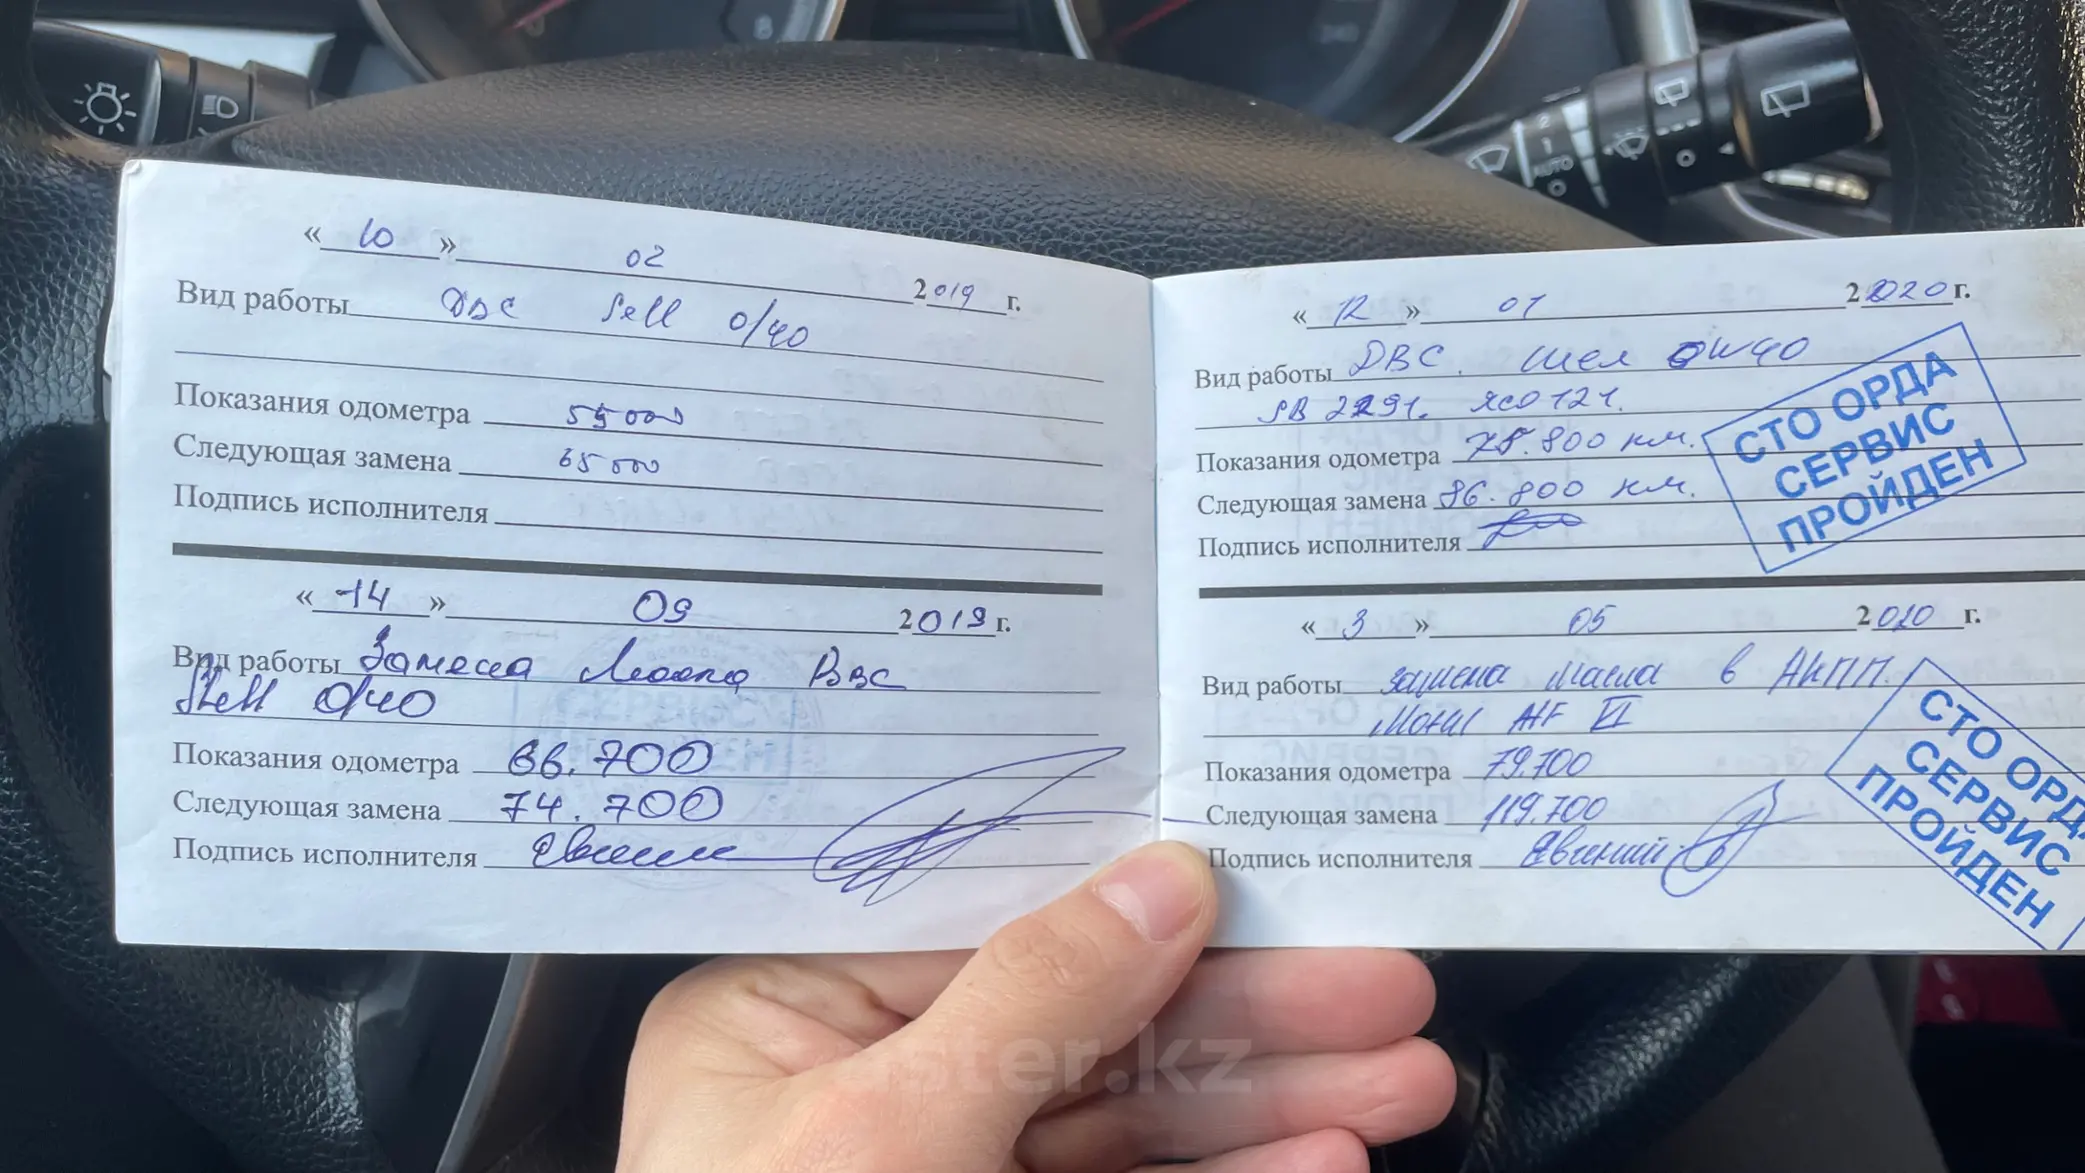 « 10 » 02 2019 г.
Вид работы ДВС Sell 0/40
Показания одометра 55000
Следующая замена 65000
Подпись исполнителя
« 14 » 09 2019 г.
Вид работы Замена Масла ДВС
Shell 0/40
Показания одометра 66.700
Следующая замена 74.700
Подпись исполнителя
« 12 » 01 2020 г.
Вид работы ДВС. Шел 5W40
Показания одометра 78.800 км.
Следующая замена 86.800 км.
Подпись исполнителя
СТО ОРДА
СЕРВИС
ПРОЙДЕН
« 3 » 05 2020 г.
Вид работы замена масла в АКПП.
Показания одометра 79.700
Следующая замена 119.700
Подпись исполнителя Евгений
СТО ОРДА
СЕРВИС
ПРОЙДЕН
AUTO
ster.kz